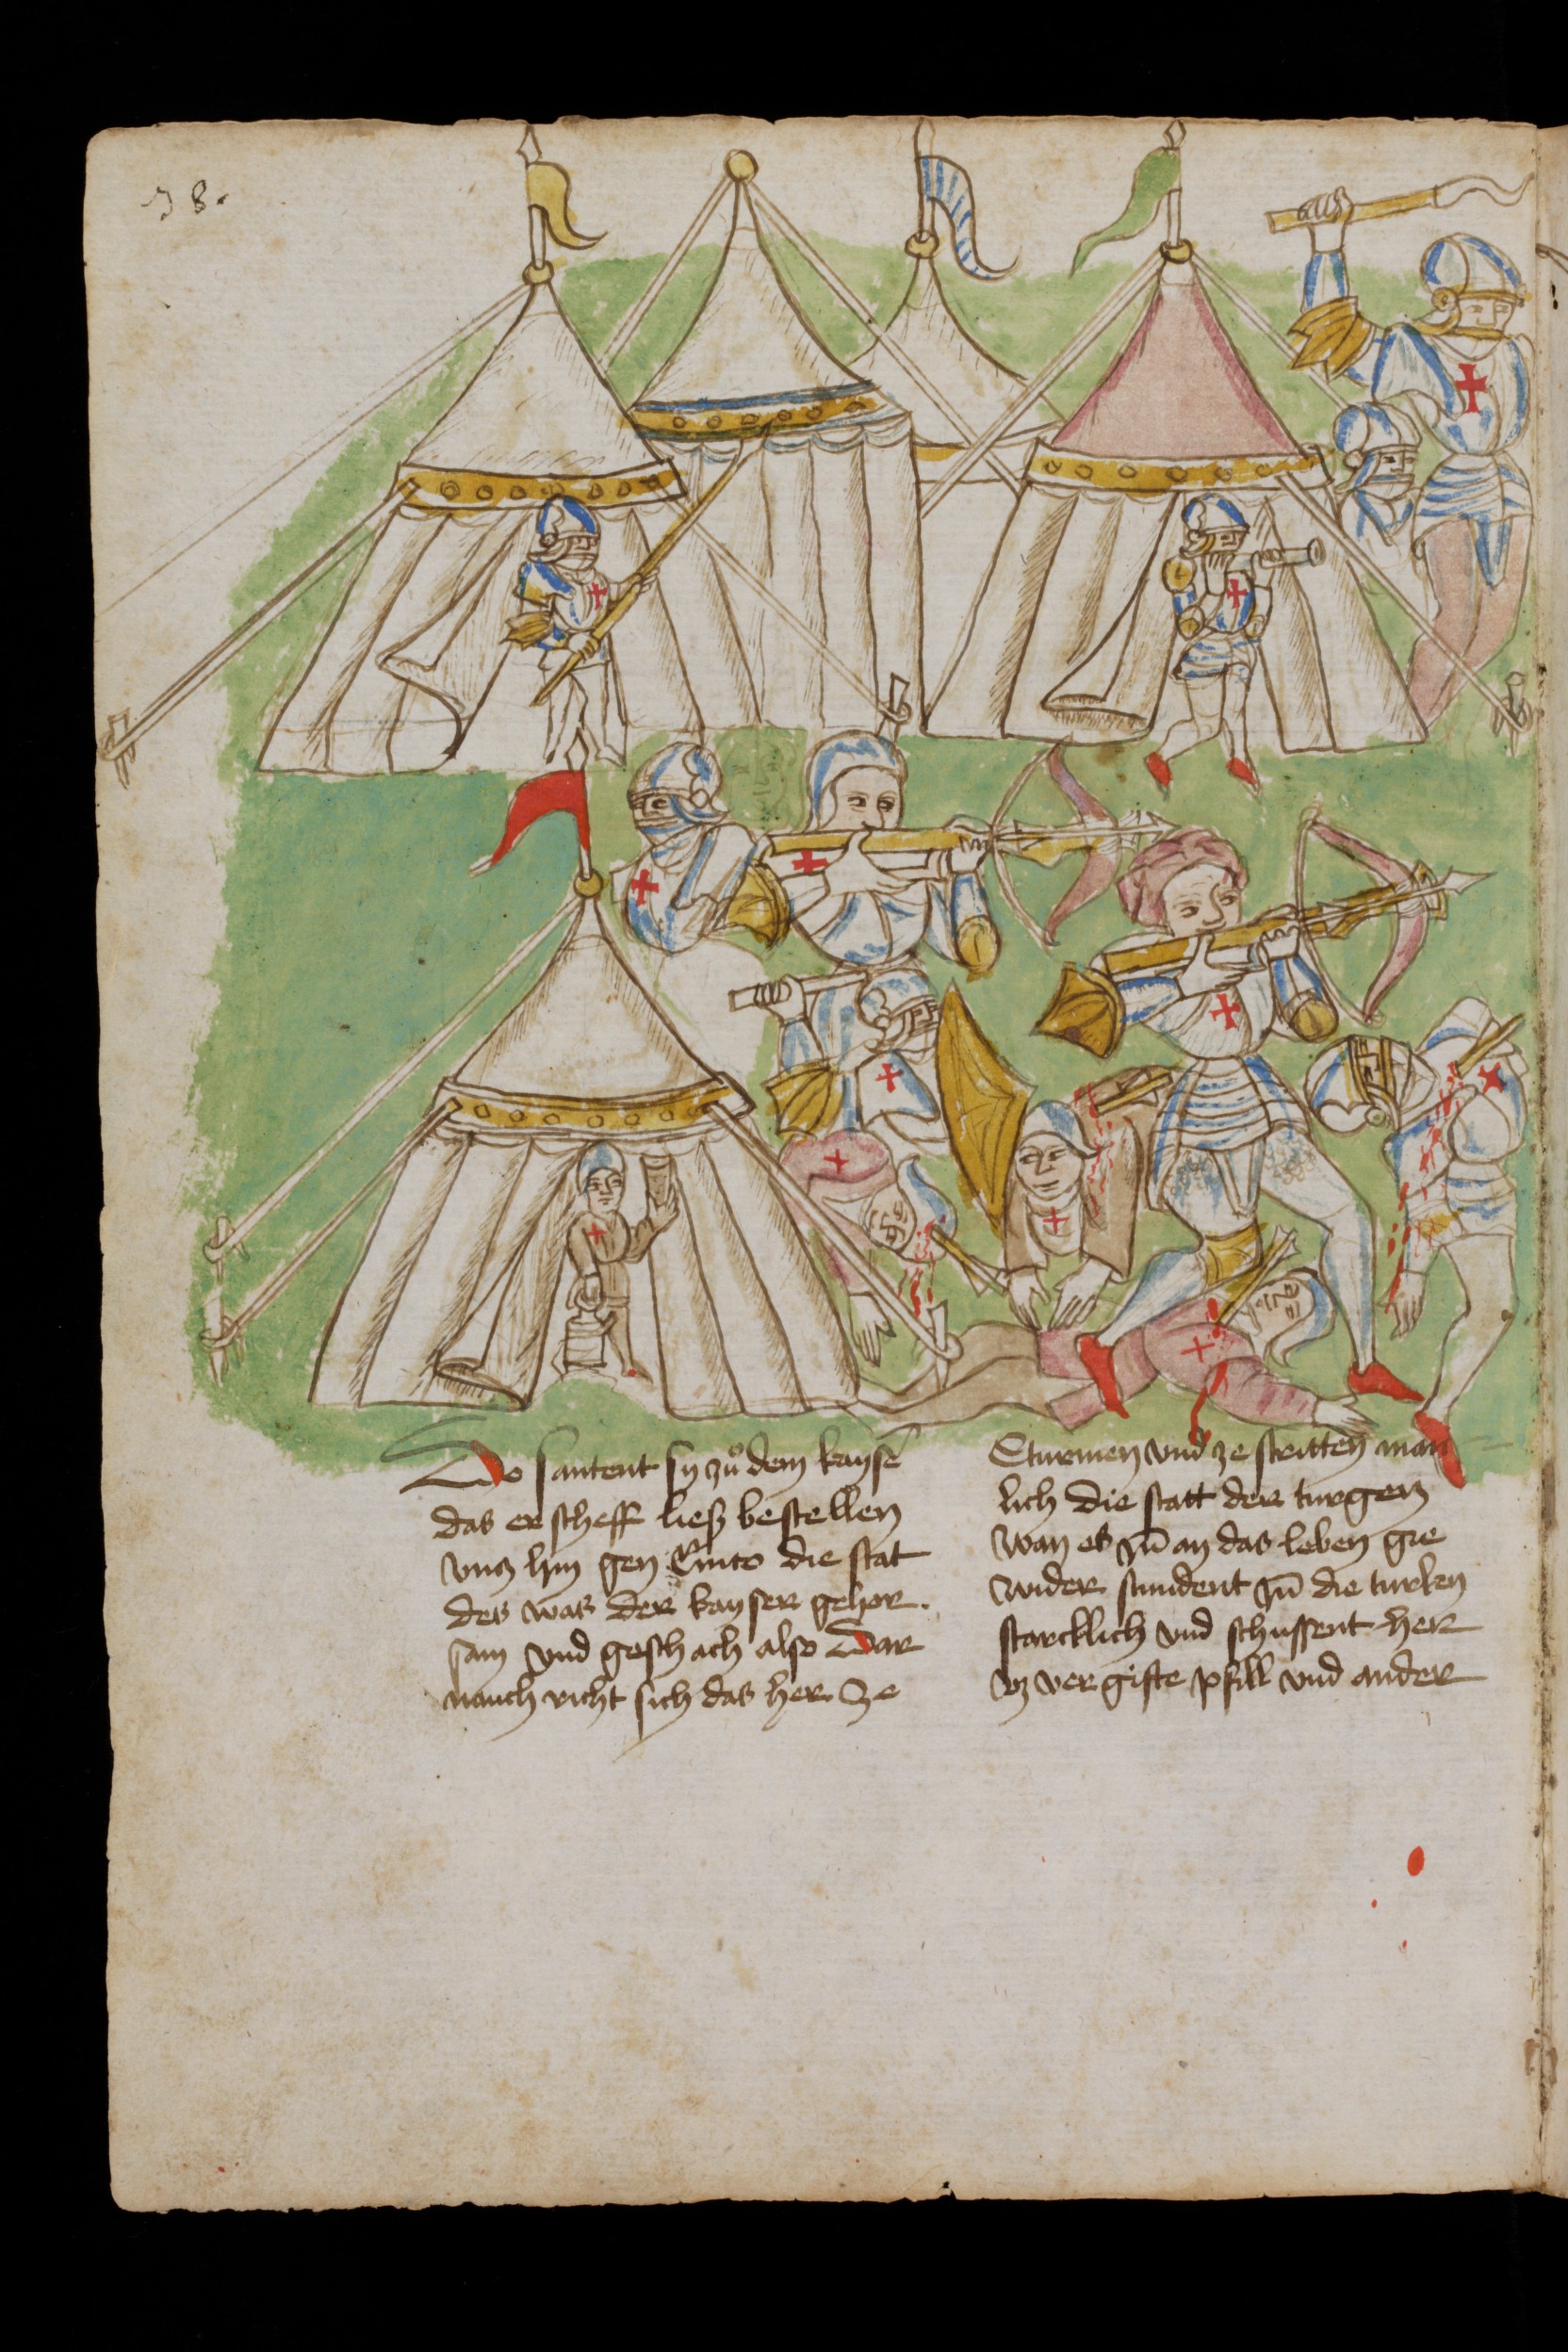 38.
Do santent sy zuͦ dem kayse͛
das er scheff ließ bestellen
vntz hin gen Ciuito die stat
des was der kayser gehor.
sam vnd geschach also Dar
nauch richt sich das her Ze
Sturmen vnd ze stritten man
lich die statt der turgen
wan es Jn̄ an das leben gie
wider stundent Jn̄ die turken
starcklich vnd schussent her
vz vergifte pfill vnd ander